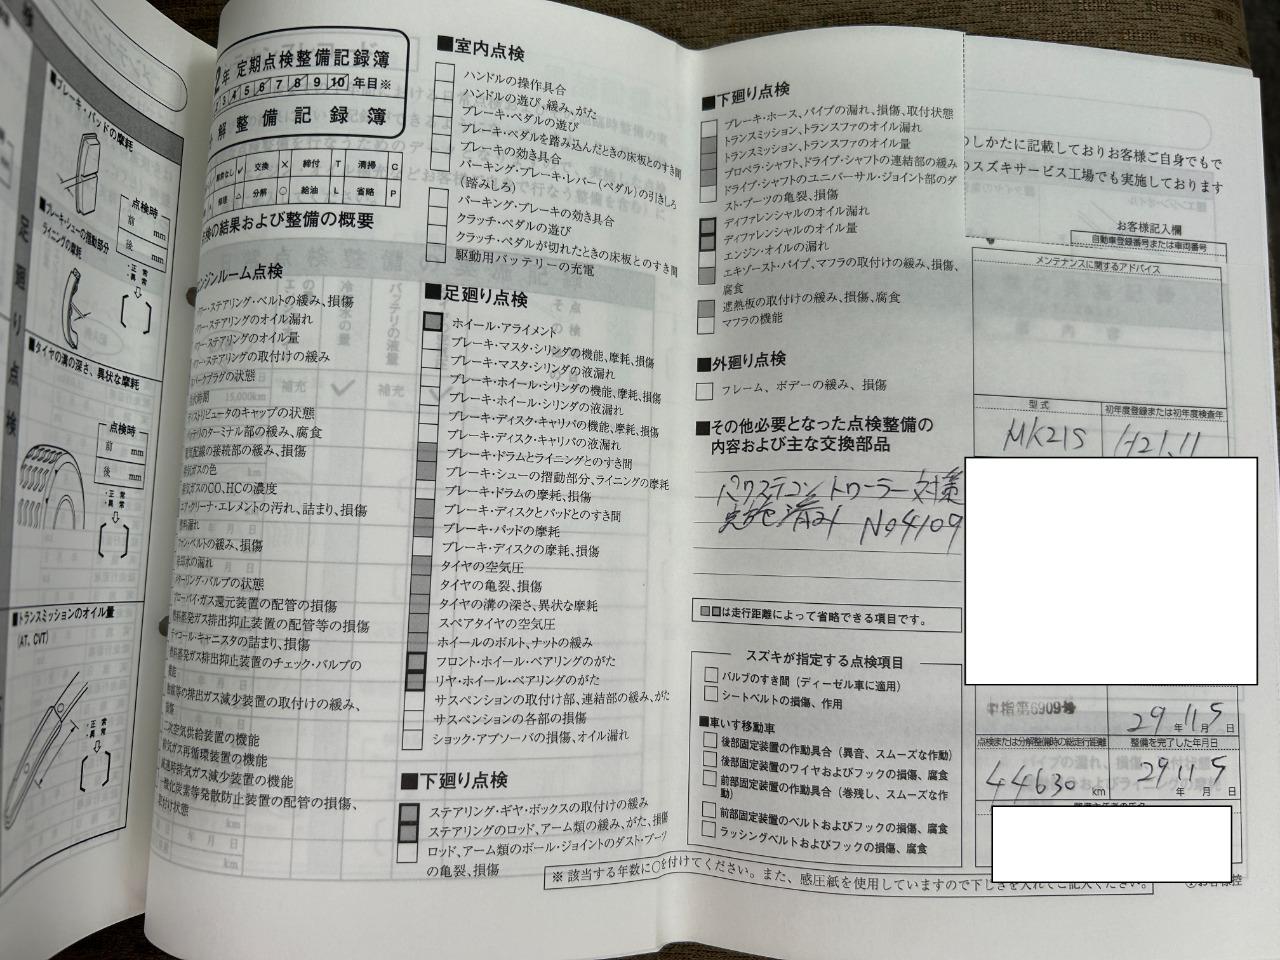 ■ブレーキ・パッドの摩耗
点検時
前 mm
後 mm
■ブレーキ・シューの摺動部分
ライニングの摩耗
・正常
・異常
足廻り点検
■タイヤの溝の深さ、異状な摩耗
点検時
前 mm
後 mm
・正常
・異常
■トランスミッションのオイル量
(AT、CVT)
・正常
・異常
2年 定期点検整備記録簿
3 4 5 6 7 8 9 10 年目※
解整備記録簿
交換 × 締付 T 清掃 C
分解 ○ 給油 L 省略 P
の結果および整備の概要
ンジンルーム点検
ワー・ステアリング・ベルトの緩み、損傷
ワー・ステアリングのオイル漏れ
ワー・ステアリングのオイル量
ワー・ステアリングの取付けの緩み
パークプラグの状態
火時期
ィストリビュータのキャップの状態
ッテリのターミナル部の緩み、腐食
気配線の接続部の緩み、損傷
気ガスの色
気ガスのCO、HCの濃度
エア・クリーナ・エレメントの汚れ、詰まり、損傷
料漏れ
ファン・ベルトの緩み、損傷
却水の漏れ
ターリング・バルブの状態
ローバイ・ガス還元装置の配管の損傷
燃料蒸発ガス排出抑止装置の配管等の損傷
チャコール・キャニスタの詰まり、損傷
燃料蒸発ガス排出抑止装置のチェック・バルブの
機能
等の排出ガス減少装置の取付けの緩み、
損傷
二次空気供給装置の機能
排気ガス再循環装置の機能
減速時排気ガス減少装置の機能
一酸化炭素等発散防止装置の配管の損傷、
取付け状態
■室内点検
ハンドルの操作具合
ハンドルの遊び、緩み、がた
ブレーキ・ペダルの遊び
ブレーキ・ペダルを踏み込んだときの床板とのすき間
ブレーキの効き具合
パーキング・ブレーキ・レバー(ペダル)の引きしろ
(踏みしろ)
パーキング・ブレーキの効き具合
クラッチ・ペダルの遊び
クラッチ・ペダルが切れたときの床板とのすき間
駆動用バッテリーの充電
■足廻り点検
ホイール・アライメント
ブレーキ・マスタ・シリンダの機能、摩耗、損傷
ブレーキ・マスタ・シリンダの液漏れ
ブレーキ・ホイール・シリンダの機能、摩耗、損傷
ブレーキ・ホイール・シリンダの液漏れ
ブレーキ・ディスク・キャリパの機能、摩耗、損傷
ブレーキ・ディスク・キャリパの液漏れ
ブレーキ・ドラムとライニングとのすき間
ブレーキ・シューの摺動部分、ライニングの摩耗
ブレーキ・ドラムの摩耗、損傷
ブレーキ・ディスクとパッドとのすき間
ブレーキ・パッドの摩耗
ブレーキ・ディスクの摩耗、損傷
タイヤの空気圧
タイヤの亀裂、損傷
タイヤの溝の深さ、異状な摩耗
スペアタイヤの空気圧
ホイールのボルト、ナットの緩み
フロント・ホイール・ベアリングのがた
リヤ・ホイール・ベアリングのがた
サスペンションの取付け部、連結部の緩み、がた
サスペンションの各部の損傷
ショック・アブソーバの損傷、オイル漏れ
■下廻り点検
ステアリング・ギヤ・ボックスの取付けの緩み
ステアリングのロッド、アーム類の緩み、がた、損傷
ロッド、アーム類のボール・ジョイントのダスト・ブーツ
の亀裂、損傷
■下廻り点検
ブレーキ・ホース、パイプの漏れ、損傷、取付状態
トランスミッション、トランスファのオイル漏れ
トランスミッション、トランスファのオイル量
プロペラ・シャフト、ドライブ・シャフトの連結部の緩み
ドライブ・シャフトのユニバーサル・ジョイント部のダ
スト・ブーツの亀裂、損傷
ディファレンシャルのオイル漏れ
ディファレンシャルのオイル量
エンジン・オイルの漏れ
エキゾースト・パイプ、マフラの取付けの緩み、損傷、
腐食
遮熱板の取付けの緩み、損傷、腐食
マフラの機能
■外廻り点検
フレーム、ボデーの緩み、損傷
■その他必要となった点検整備の
内容および主な交換部品
パワステコントローラー対策
実施済み No4109
は走行距離によって省略できる項目です。
スズキが指定する点検項目
バルブのすき間(ディーゼル車に適用)
シートベルトの損傷、作用
■車いす移動車
後部固定装置の作動具合(異音、スムーズな作動)
後部固定装置のワイヤおよびフックの損傷、腐食
前部固定装置の作動具合(巻残し、スムーズな作
動)
前部固定装置のベルトおよびフックの損傷、腐食
ラッシングベルトおよびフックの損傷、腐食
※該当する年数に○を付けてください。また、感圧紙を使用していますので下じきを入れてご記入ください。
のしかたに記載しておりお客様ご自身でもで
のスズキサービス工場でも実施しております
お客様記入欄
自動車登録番号または車両番号
メンテナンスに関するアドバイス
型式
初年度登録または初年度検査年
MK21S
H21.11
中指第6909号
29年11月5日
点検または分解整備時の総走行距離
整備を完了した年月日
44630 km
29年11月5日
お客様控